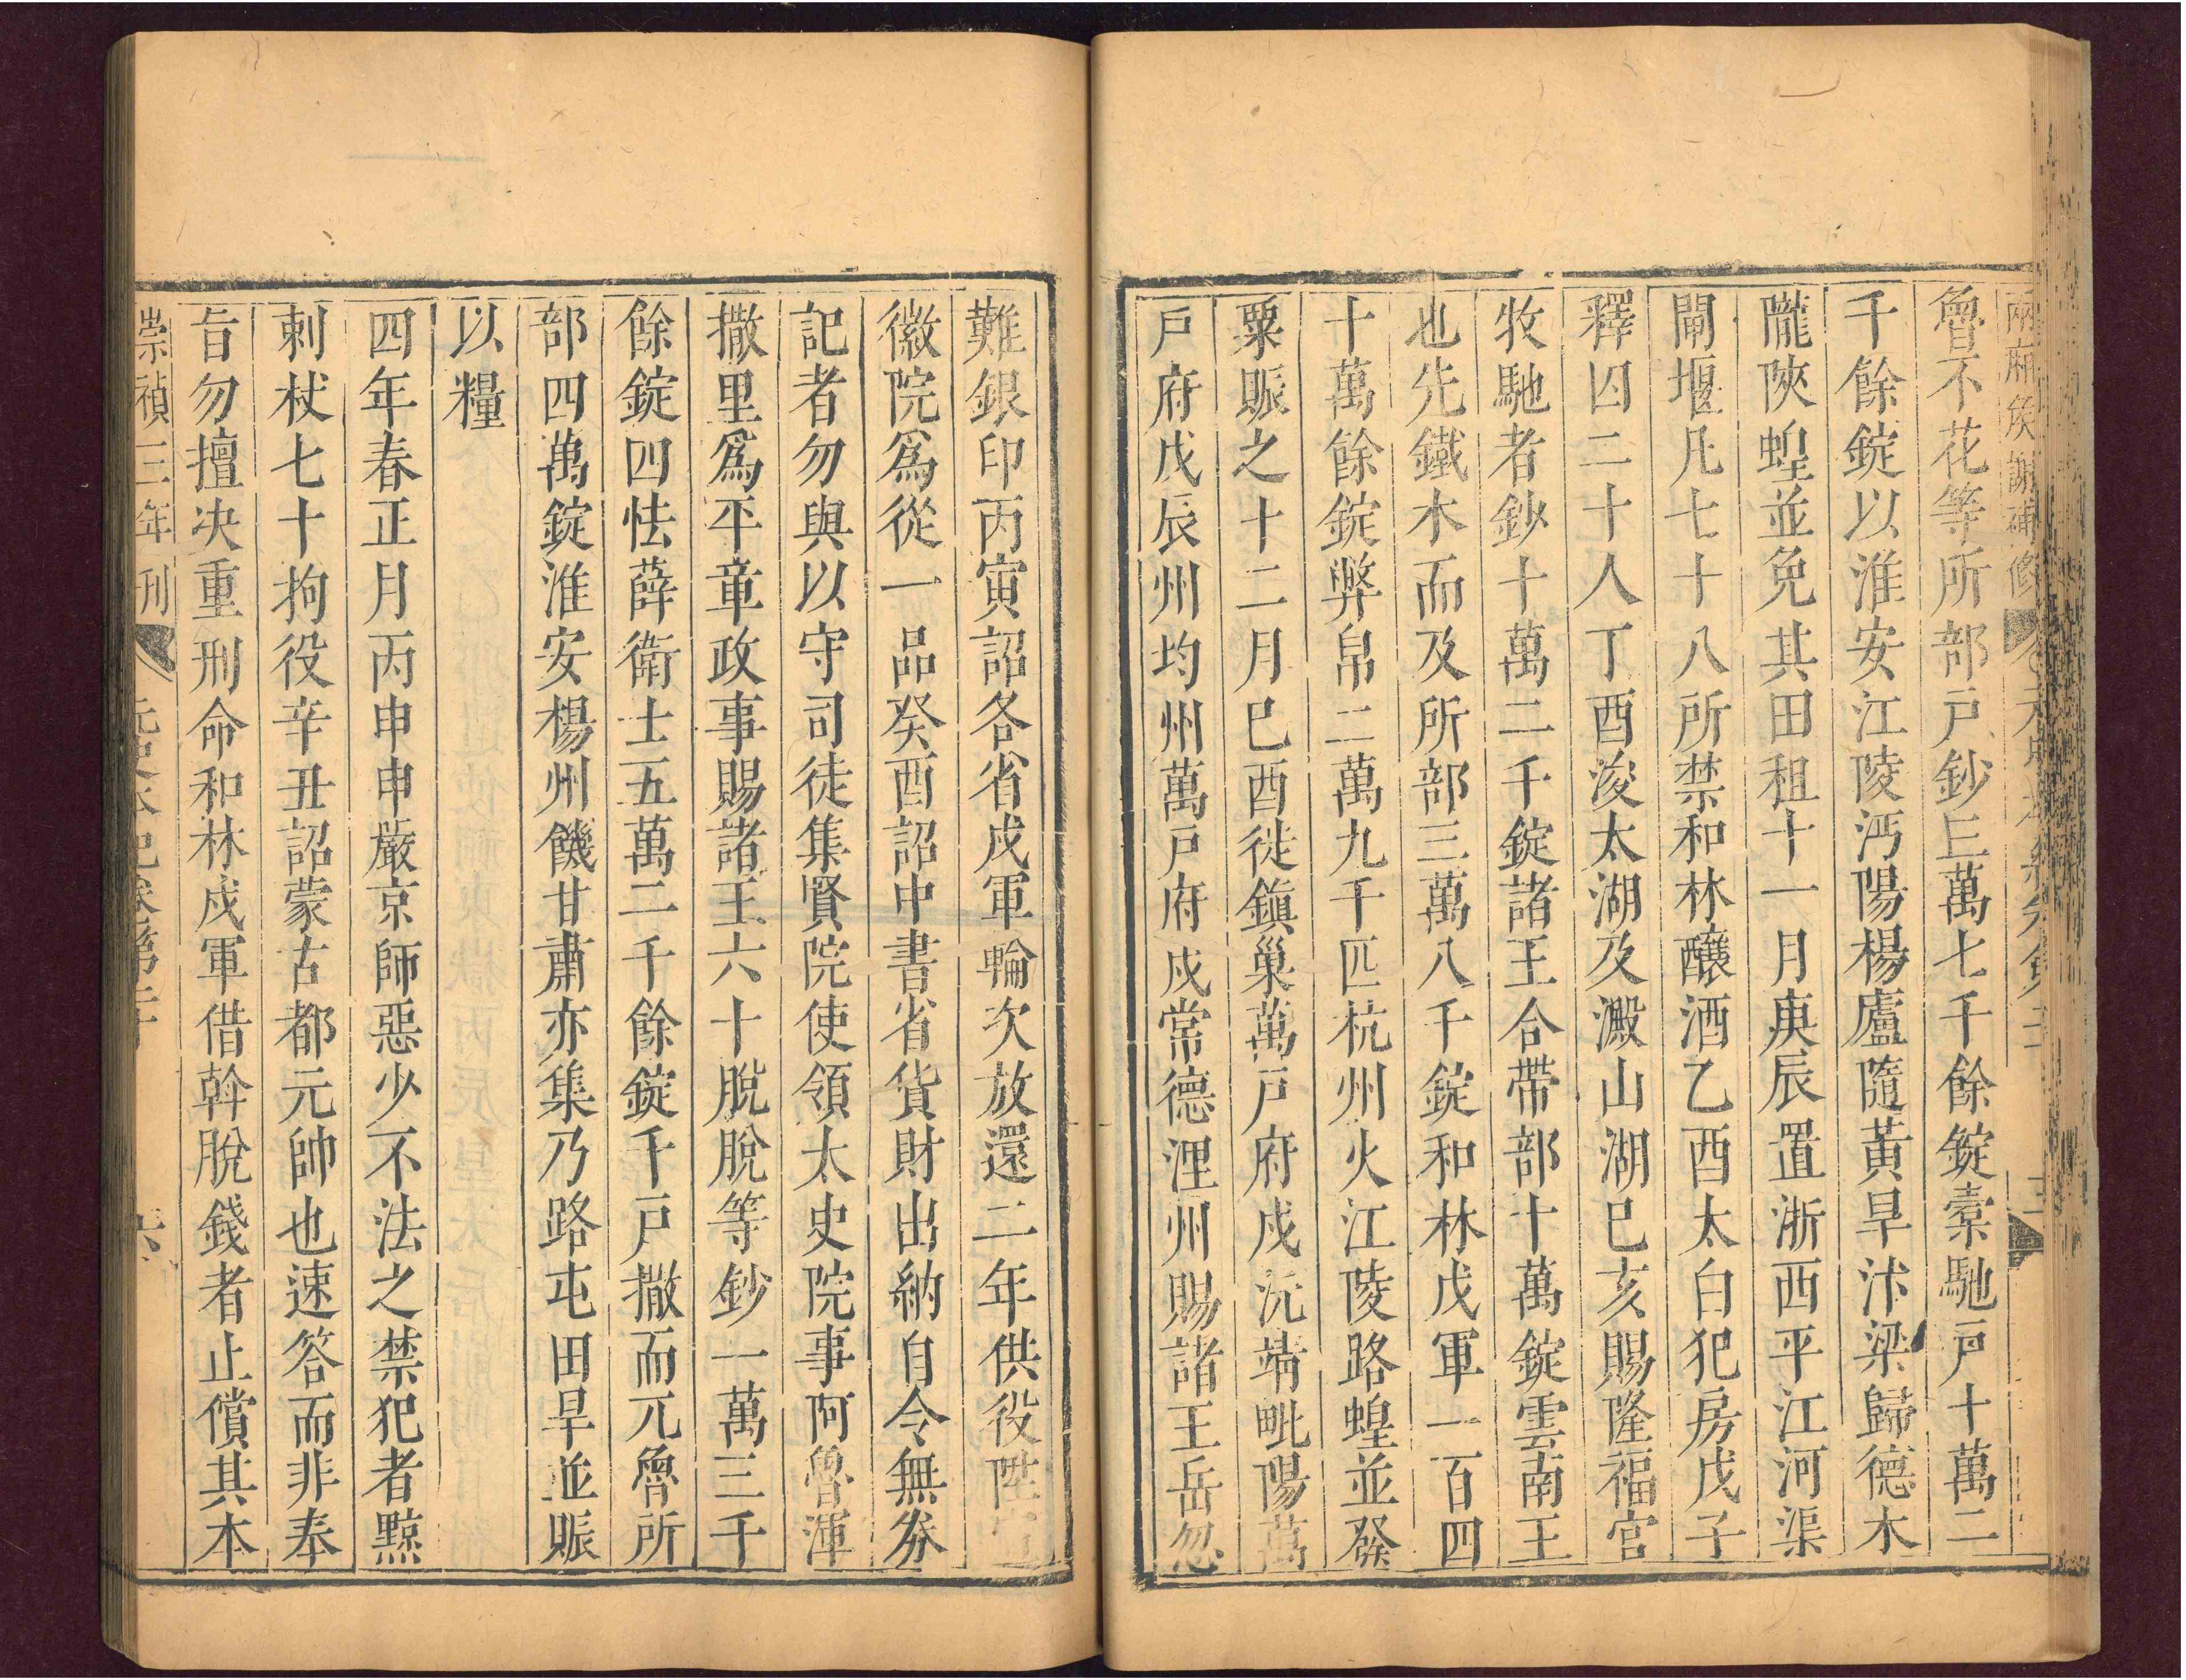 魯不花等所部戶鈔三萬七千餘錠橐馳戶十萬二
千餘錠以淮安江陵沔陽楊廬隨黃旱汴梁歸德水
隴陝蝗並免其田租十一月庚辰置浙西平江河渠
閘堰凡七十八所禁和林釀酒乙酉太白犯房戊子
釋囚二十人丁酉浚太湖及澱山湖巳亥賜隆福宮
牧馳者鈔十萬二千錠諸王合帶部十萬錠雲南王
也先鐵木而及所部三萬八千錠和林戊軍一百四
十萬餘錠弊帛二萬九千匹杭州火江陵路蝗並發
粟賑之十二月巳酉徙鎮巢萬戶府戍沅靖毗陽萬
戶府戍辰州均州萬戶府戍常德浬州賜諸王岳忽
難銀印丙寅詔各省戍軍輪次放還二年供役陞宣
徽院爲從一品癸酉詔中書省貨財出納自今無劵
記者勿與以守司徒集賢院使領太史院事阿魯渾
撒里爲平章政事賜諸王六十脫脫等鈔一萬三千
餘錠四怯薛衛士五萬二千餘錠千戶撒而兀魯所
部四萬錠淮安楊州饑甘肅亦集乃路屯田旱並賑
以糧
四年春正月丙申申嚴京師惡少不法之禁犯者黥
刺杖七十拘役辛丑詔蒙古都元帥也速答而非奉
旨勿擅决重刑命和林戍軍借斡脫錢者止償其本
崇禎三年刊 元史本紀卷第二十 六